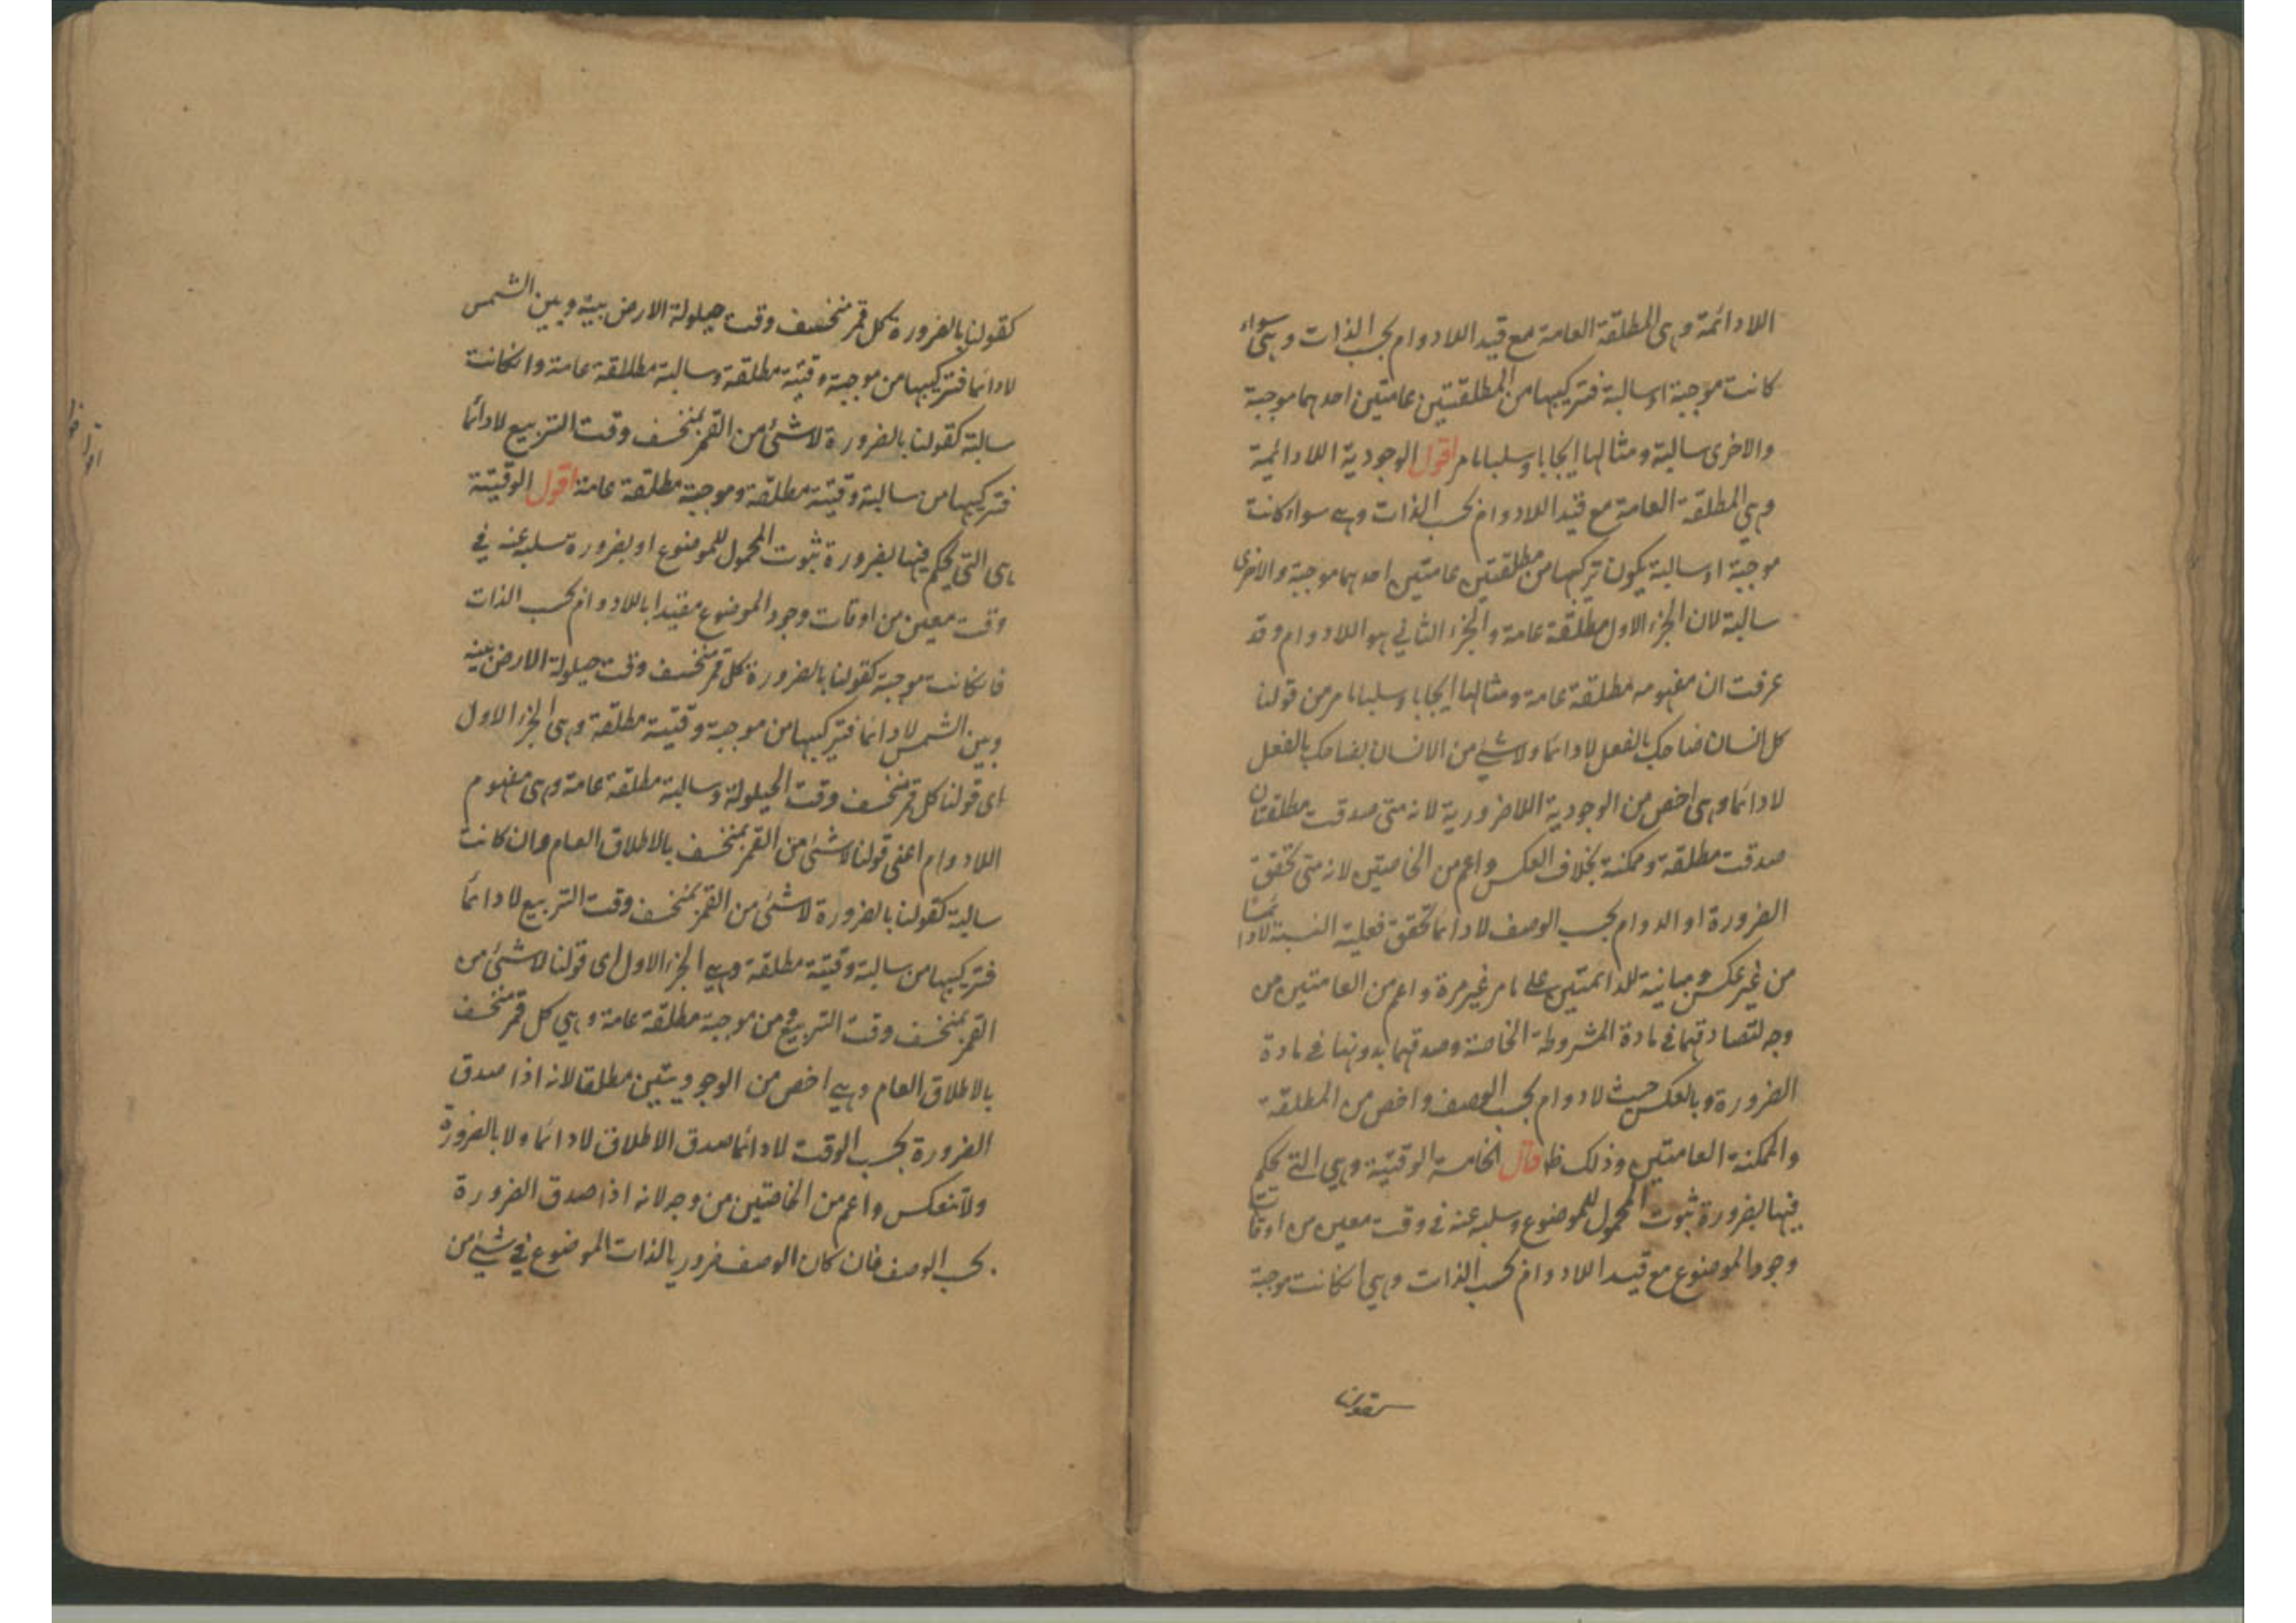 اللادائمة وهى المطلقة العامة مع قيد اللادوام بحسب الذات وهى سواء
كانت موجبة او سالبة فتركيبها من المطلقتين عامتين احدهما موجبة
والاخرى سالبة ومثالها ايجابا وسلبا ما مر اقول الوجودية اللادائمية
وهي المطلقة العامة مع قيد اللادوام بحسب الذات وهي سواء كانت
موجبة او سالبة يكون تركيبها من مطلقتين عامتين احدهما موجبة والاخرى
سالبة لان الجزء الاول مطلقة عامة والجزء الثاني هو اللادوام وقد
عرفت ان مفهومه مطلقة عامة ومثالها ايجابا وسلبا ما مر من قولنا
كل انسان ضاحك بالفعل لادائما ولا شئ من الانسان بضاحك بالفعل
لادائما وهى اخص من الوجودية اللاضرورية لانه متى صدقت مطلقتان
صدقت مطلقة وممكنة بخلاف العكس واعم من الخاصتين لانه متى تحقق
الضرورة او الدوام بحسب الوصف لادائما تحقق فعلية النسبة لادائما
من غير عكس ومباينة للدائمتين على ما مر غير مرة واعم من العامتين من
وجه لتصادقهما في مادة المشروطة الخاصة وصدقهما بدونها في مادة
الضرورة وبالعكس حيث لادوام بحسب الوصف واخص من المطلقة
والممكنة العامتين وذلك ظ قال الخامسة الوقتية وهي التي يحكم
فيها بضرورة ثبوت المحمول للموضوع وسلبه عنه في وقت معين من اوقات
وجود الموضوع مع قيد اللادوام بحسب الذات وهي انكانت موجبة
كقولنا
كقولنا بالضرورة كل قمر منخسف وقت حيلولة الارض بينه وبين الشمس
لادائما فتركيبها من موجبة وقتية مطلقة وسالبة مطلقة عامة وانكانت
سالبة كقولنا بالضرورة لاشئ من القمر بمنخسف وقت التربيع لادائما
فتركيبها من سالبة وقتية مطلقة وموجبة مطلقة عامة اقول الوقتية
هى التي يحكم فيها بضرورة ثبوت المحمول للموضوع او بضرورة سلبه عنه في
وقت معين من اوقات وجود الموضوع مقيدا باللادوام بحسب الذات
فانكانت موجبة كقولنا بالضرورة كل قمر منخسف وقت حيلولة الارض بينه
وبين الشمس لادائما فتركيبها من موجبة وقتية مطلقة وهى الجزء الاول
اى قولنا كل قمر منخسف وقت الحيلولة وسالبة مطلقة عامة وهى مفهوم
اللادوام اعنى قولنا لاشئ من القمر بمنخسف بالاطلاق العام وان كانت
سالبة كقولنا بالضرورة لاشئ من القمر بمنخسف وقت التربيع لادائما
فتركيبها من سالبة وقتية مطلقة وهي الجزء الاول اى قولنا لاشئ من
القمر بمنخسف وقت التربيع ومن موجبة مطلقة عامة وهي كل قمر منخسف
بالاطلاق العام وهي اخص من الوجوديتين مطلقا لانه اذا صدق
الضرورة بحسب الوقت لادائما صدق الاطلاق لادائما ولا بالضرورة
ولا تنعكس واعم من الخاصتين من وجه لانه اذا صدق الضرورة
بحسب الوصف فان كان الوصف ضروريا لذات الموضوع في شئ من